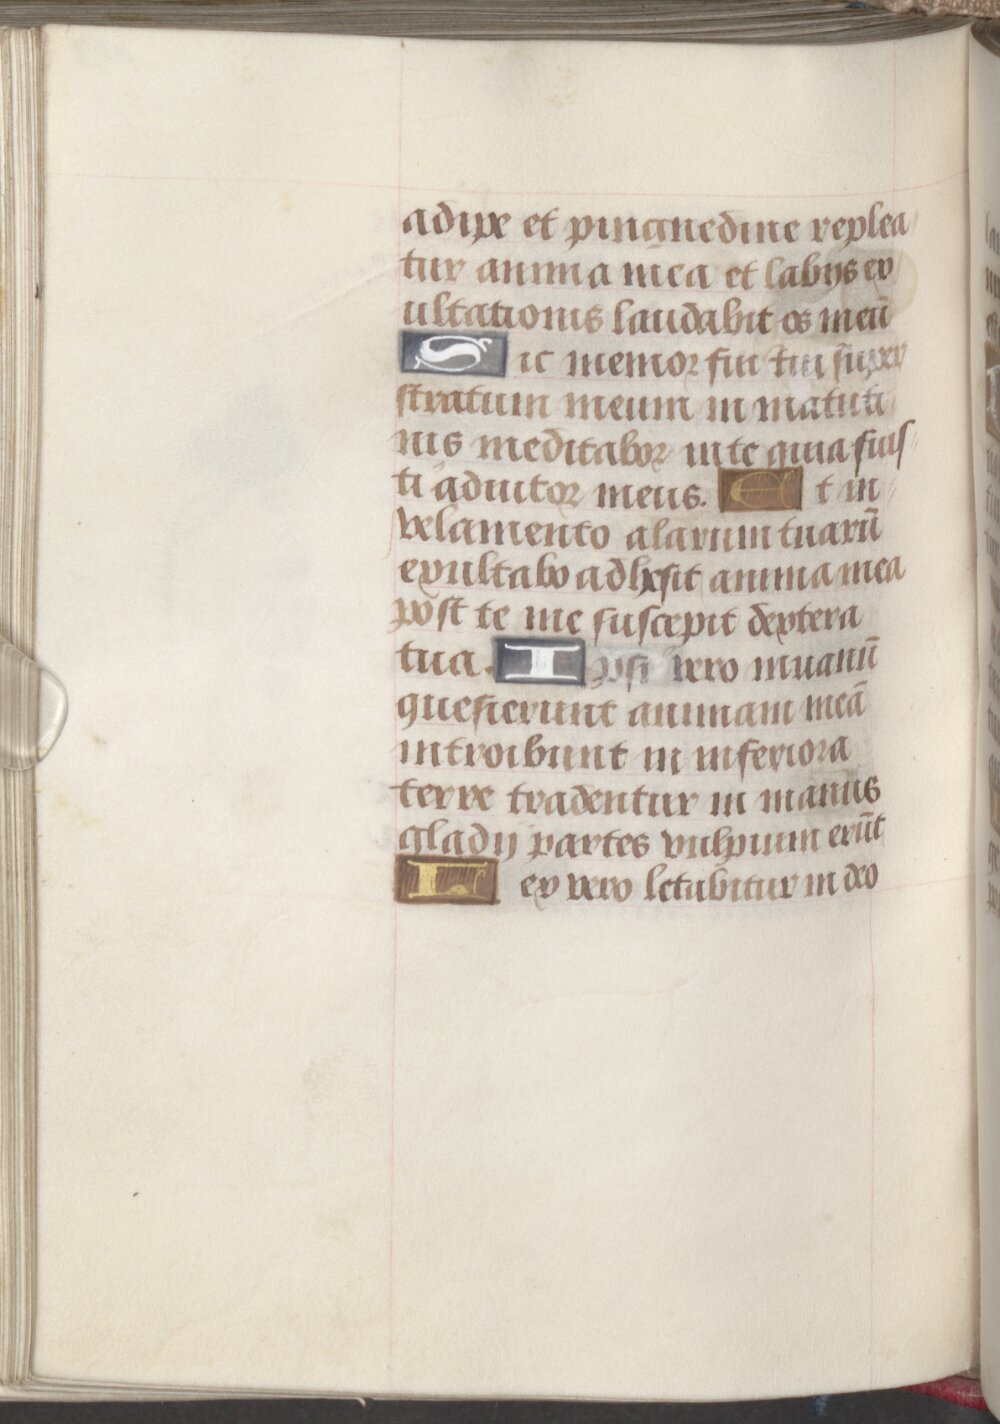 adipe et pinguedine replea
tur anima mea et labijs ex
ultationis laudabit os meũ
Sic memor fui tui super
stratum meum in matuti
nis meditabor in te quia fuis
ti adiutor meus. Et in
velamento alarum tuarũ
exultabo adhesit anima mea
post te me suscepit dextera
tua. Ipsi vero in vanũ
quesierunt animam meã
introibunt in inferiora
terre tradentur in manus
gladij partes vulpium erũt
Rex vero letabitur in deo